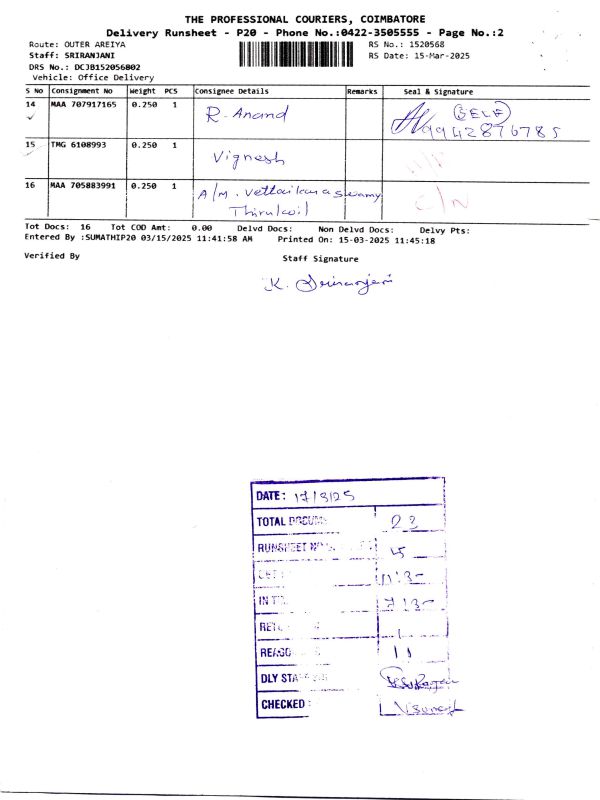 THE PROFESSIONAL COURIERS, COIMBATORE
Delivery Runsheet - P20 - Phone No.:0422-3505555 - Page No.:2
Route: OUTER AREIYA
RS No.: 1520568
Staff: SRIRANJANI
RS Date: 15-Mar-2025
DRS No.: DCJB152056802
Vehicle: Office Delivery
S No Consignment No Weight PCS Consignee Details Remarks Seal & Signature
14 MAA 707917165 0.250 1 R. Anand SELF 9942876785
15 TMG 6108993 0.250 1 Vignesh
16 MAA 705883991 0.250 1 A/M. Vettaikaraswamy C/N
Thirukoil
Tot Docs: 16 Tot COD Amt: 0.00 Delvd Docs: Non Delvd Docs: Delvy Pts:
Entered By :SUMATHIP20 03/15/2025 11:41:58 AM Printed On: 15-03-2025 11:45:18
Verified By Staff Signature
K. Sriranjani
DATE: 17/3/25
TOTAL 22
RUNSHEET 15
IN
DLY STA
CHECKED: